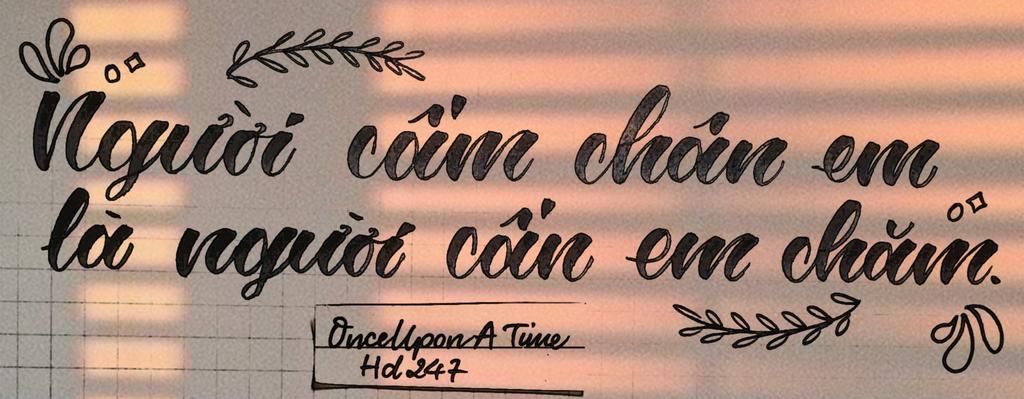 Người cầm chân em
là người cần em chăm.
OnceUpon A Time
Hd 247